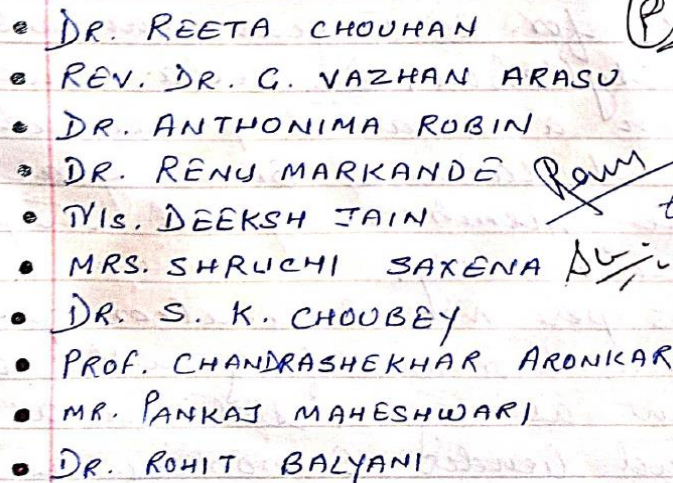 • DR. REETA CHOUHAN
• REV. DR. G. VAZHAN ARASU
• DR. ANTHONIMA ROBIN
• DR. RENU MARKANDE
• Ms. DEEKSH JAIN
• MRS. SHRUCHI SAXENA
• DR. S. K. CHOUBEY
• PROF. CHANDRASHEKHAR ARONKAR
• MR. PANKAJ MAHESHWARI
• DR. ROHIT BALYANI